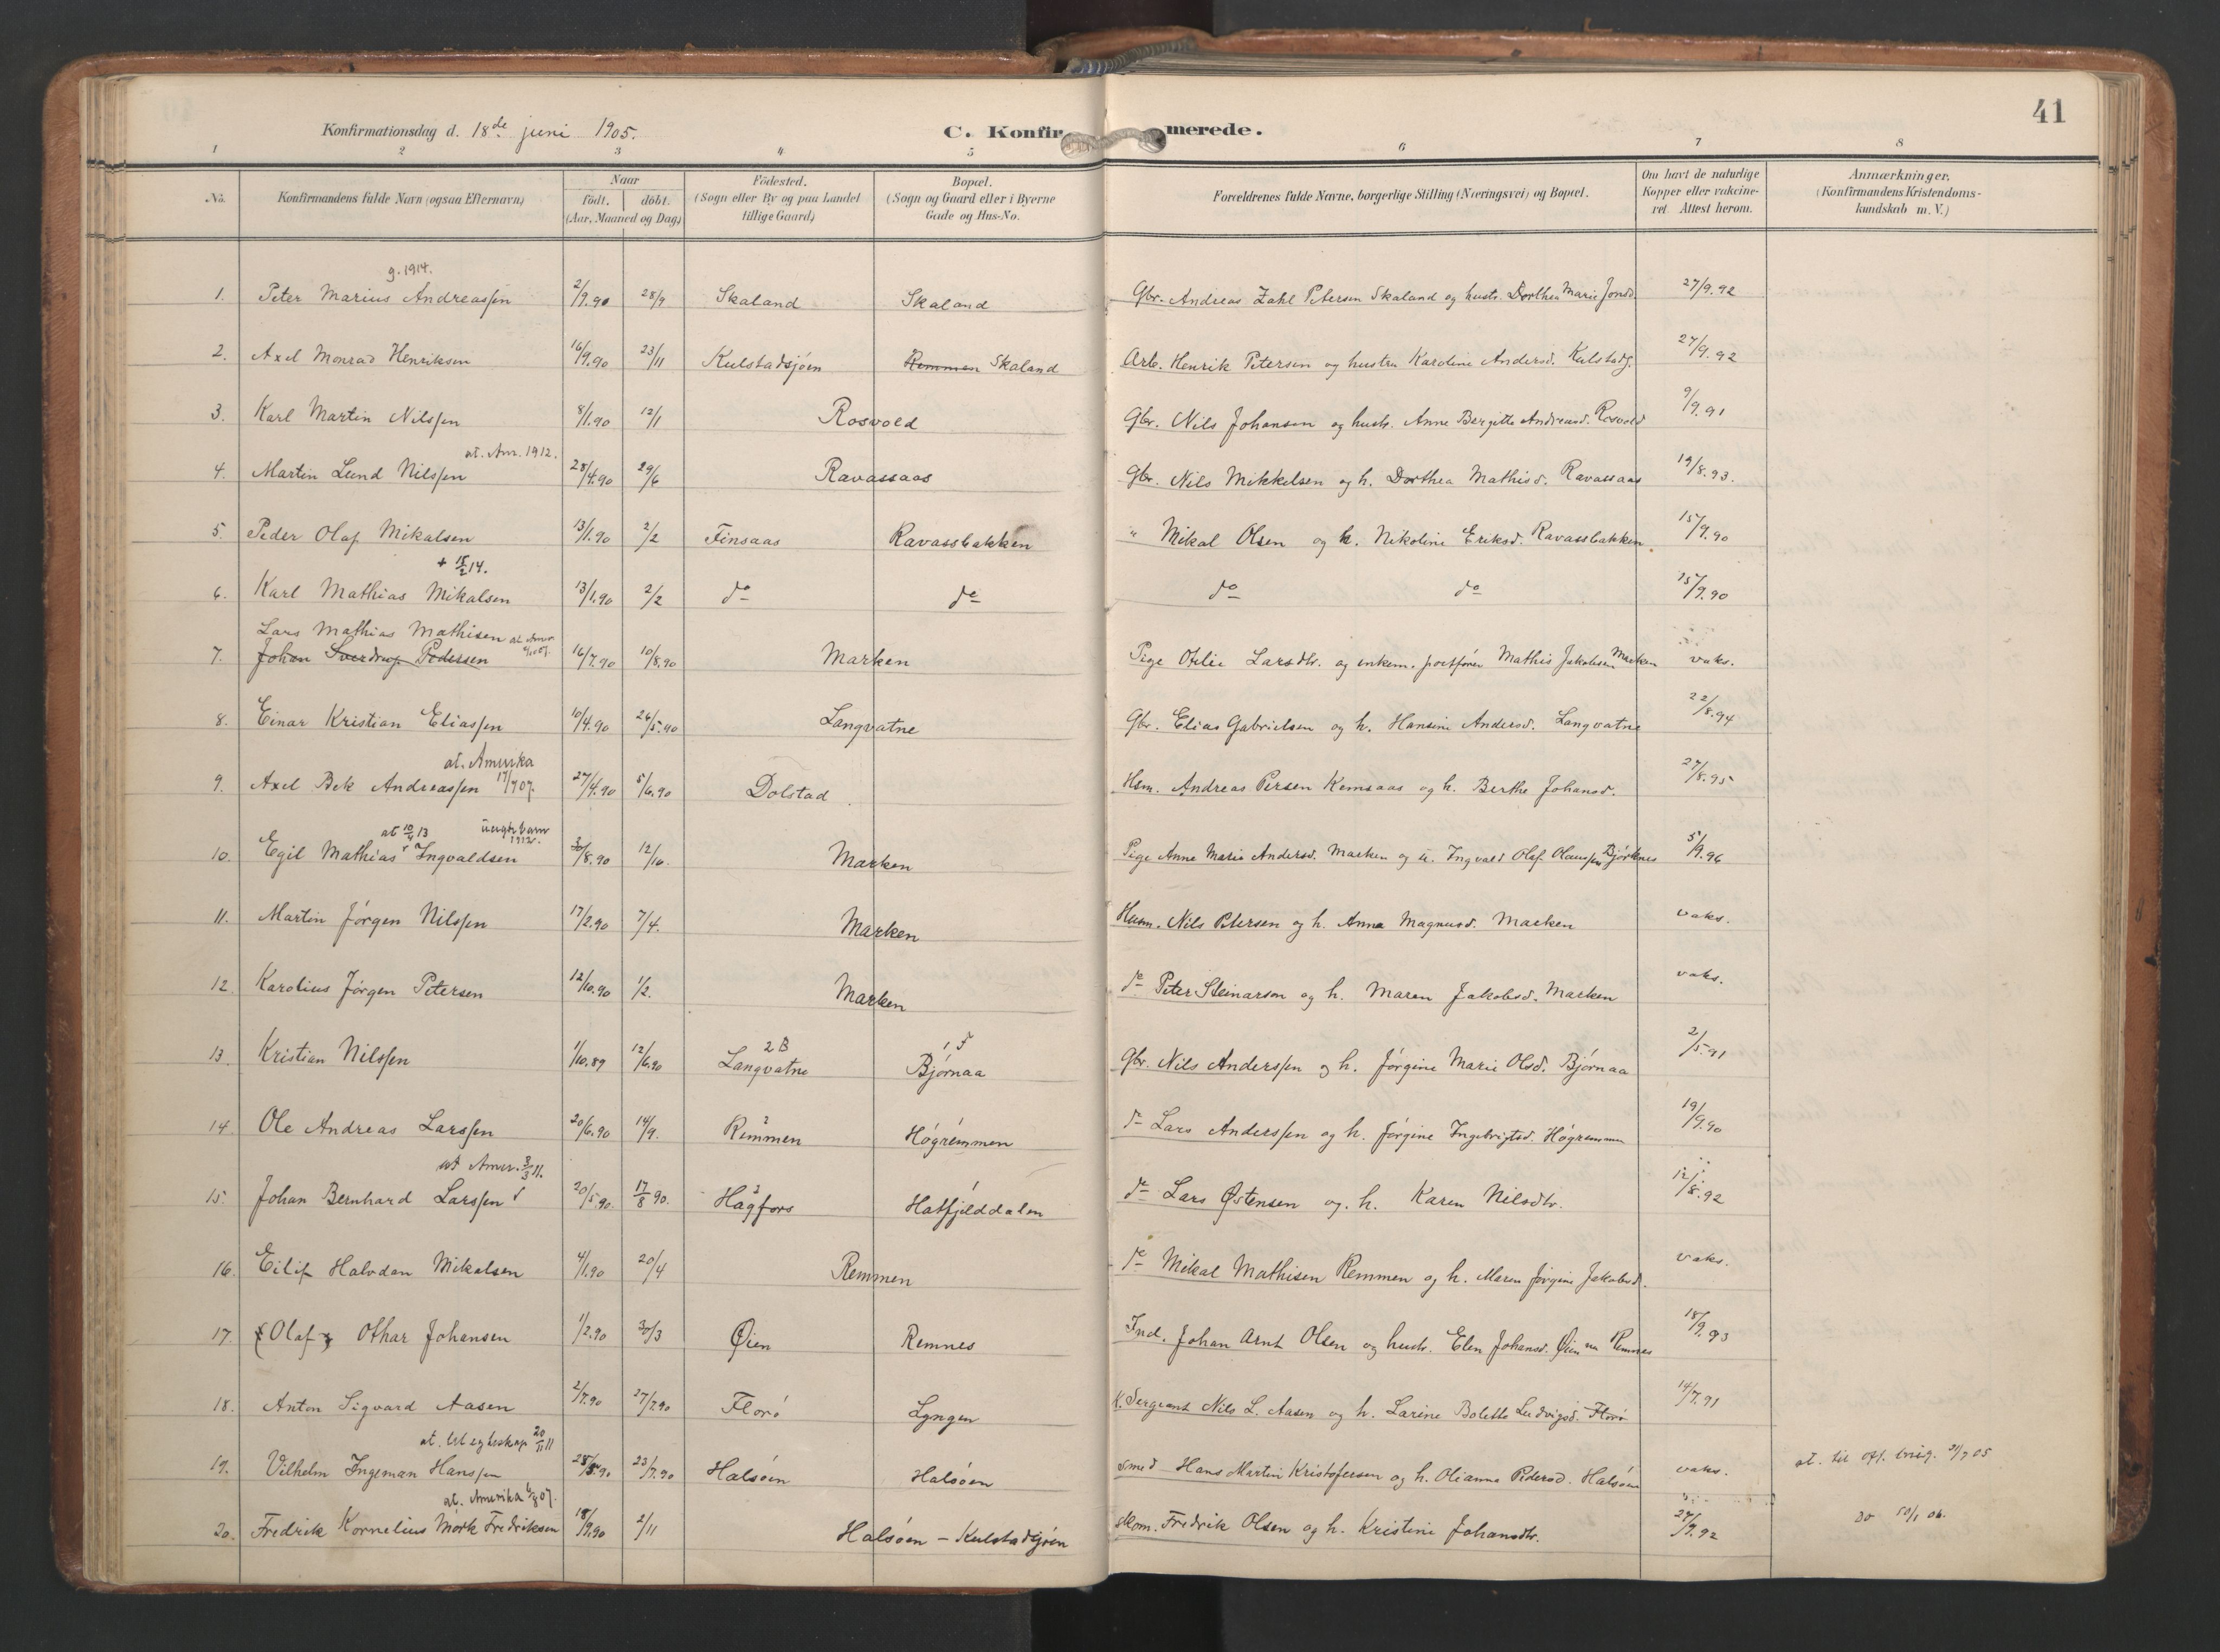 41
Konfirmationsdag d. 18de juni 1905.
C. Konfirmerede.
1 2 3 4 5 6 7 8
No. Konfirmandens fulde Navn (ogsaa Efternavn) Naar födt. döbt. (Aar, Maaned og Dag) Födested. (Sogn eller By og paa Landet tillige Gaard) Bopæl. (Sogn og Gaard eller i Byerne Gade og Hus-No. Forældrenes fulde Navne, borgerlige Stilling (Næringsvei) og Bopæl. Om havt de naturlige Kopper eller vaccineret. Attest herom. Anmærkninger, (Konfirmandens Kristendomskundskab m. V.)
g. 1914.
1. Peter Marius Andreassen 2/9.90 28/9 Skaland Skaland Gbr. Andreas Zahl Petersen Skaland og hustr. Dorthea Marie Jonsd. 27/9.92
2. Axel Monrad Henriksen 16/9.90 23/11 Kulstadsjøen Remmen Skaland Arb. Henrik Petersen og hustru Karoline Andersd. Kulstadsj. 27/9.92
3. Karl Martin Nilssen 8/1.90 12/1 Rosvold Gbr. Nils Johansen og hustr. Anne Bergitte Andreasd. Rosvold 9/9.91
at. Am. 1912.
4. Martin Lund Nilssen 28/4.90 29/6 Ravassaas Gbr. Nils Mikkelsen og h. Dorthea Mathisd. Ravassaas 19/8.93.
5. Peder Olaf Mikalsen 13/1.90 2/2 Finsaas Ravassbakken " Mikal Olsen og h. Nikoline Eriksd. Ravassbakken 15/9.90
+ 15/2 14.
6. Karl Mathias Mikalsen 13/1.90 2/2 do do do do 15/9.90
Lars Mathias Mathisen at Amr.
7. Johan Sverdrup Pedersen 16/7.90 10/8.90 Marken Pige Otilie Larsdtr. og enkem. postfører Mathis Jakobsen Marken vaks.
8. Einar Kristian Eliassen 10/4.90 26/5.90 Langvatne Gbr. Elias Gabrielsen og h. Hansine Andersd. Langvatne 22/8.94
at. Amerika
9. Axel Bek Andreassen 17/7 07. 27/4.90 5/6.90 Dolstad Hsm. Andreas Persen Kemsaas og h. Berthe Johansd. 27/8.95
at 10/4 13 uegte barn 1912.
10. Egil Mathias Ingvaldsen 30/8.90 12/10. Marken Pige Anne Marie Andersd. Marken og u. Ingvald Olaf Olaussen Bjørknes 5/9.96
11. Martin Jørgen Nilssen 17/2.90 7/4. Marken Husm. Nils Petersen og h. Anna Magnusd. Marken vaks.
12. Karolius Jørgen Petersen 12/10.90 1/2. Marken do Peter Steinarson og h. Maren Jakobsd. Marken vaks.
2 B 1 F
13. Kristian Nilssen 1/10.89 12/6.90 Langvatne Bjørnaa Gbr. Nils Anderssen og h. Jørgine Marie Olsd. Bjørnaa 2/5.91
14. Ole Andreas Larssen 20/6.90 14/9. Remmen Høgremmen do Lars Anderssen og h. Jørgine Ingebrigtsd. Høgremmen 19/9.90
ut Amer. 3/3 11.
15. Johan Bernhard Larssen 20/5.90. 17/8 90. Hagfors Hatfjelddalen do Lars Østensen og. h. Karen Nilsdtr. 12/8.92
16. Eilif Halvdan Mikalsen 4/1.90 20/4 Remmen do Mikal Mathisen Remmen og h. Maren Jørgine Jakobsd. vaks.
17. (Olaf) Othar Johansen 1/2.90 30/3 Øien Remnes Ind. Johan Arnt Olsen og hustr. Elen Johansd. Øien nu Remnes 18/9.93
18. Anton Sigvard Aasen 2/7.90 27/7.90 Florø Lyngen K. Sergeant Nils L. Aasen og h. Larine Bolette Ludvigsd. Florø 14/7.91
at. til egteskap 20/11 11
19. Vilhelm Ingeman Hanssen 28/5.90 23/7.90 Halsøen Halsøen Smed Hans Martin Kristofersen og h. Olianna Pedersd. Halsøen vaks. at. til off. brug. 21/7 05
at. Amerika 6/8 07.
20. Fredrik Kornelius Mørk Fredriksen 18/9.90 2/11 Halsøen - Kulstadsjøen Skom. Fredrik Olsen og h. Kristine Johansdtr. 27/9.92 Do 10/1 06.